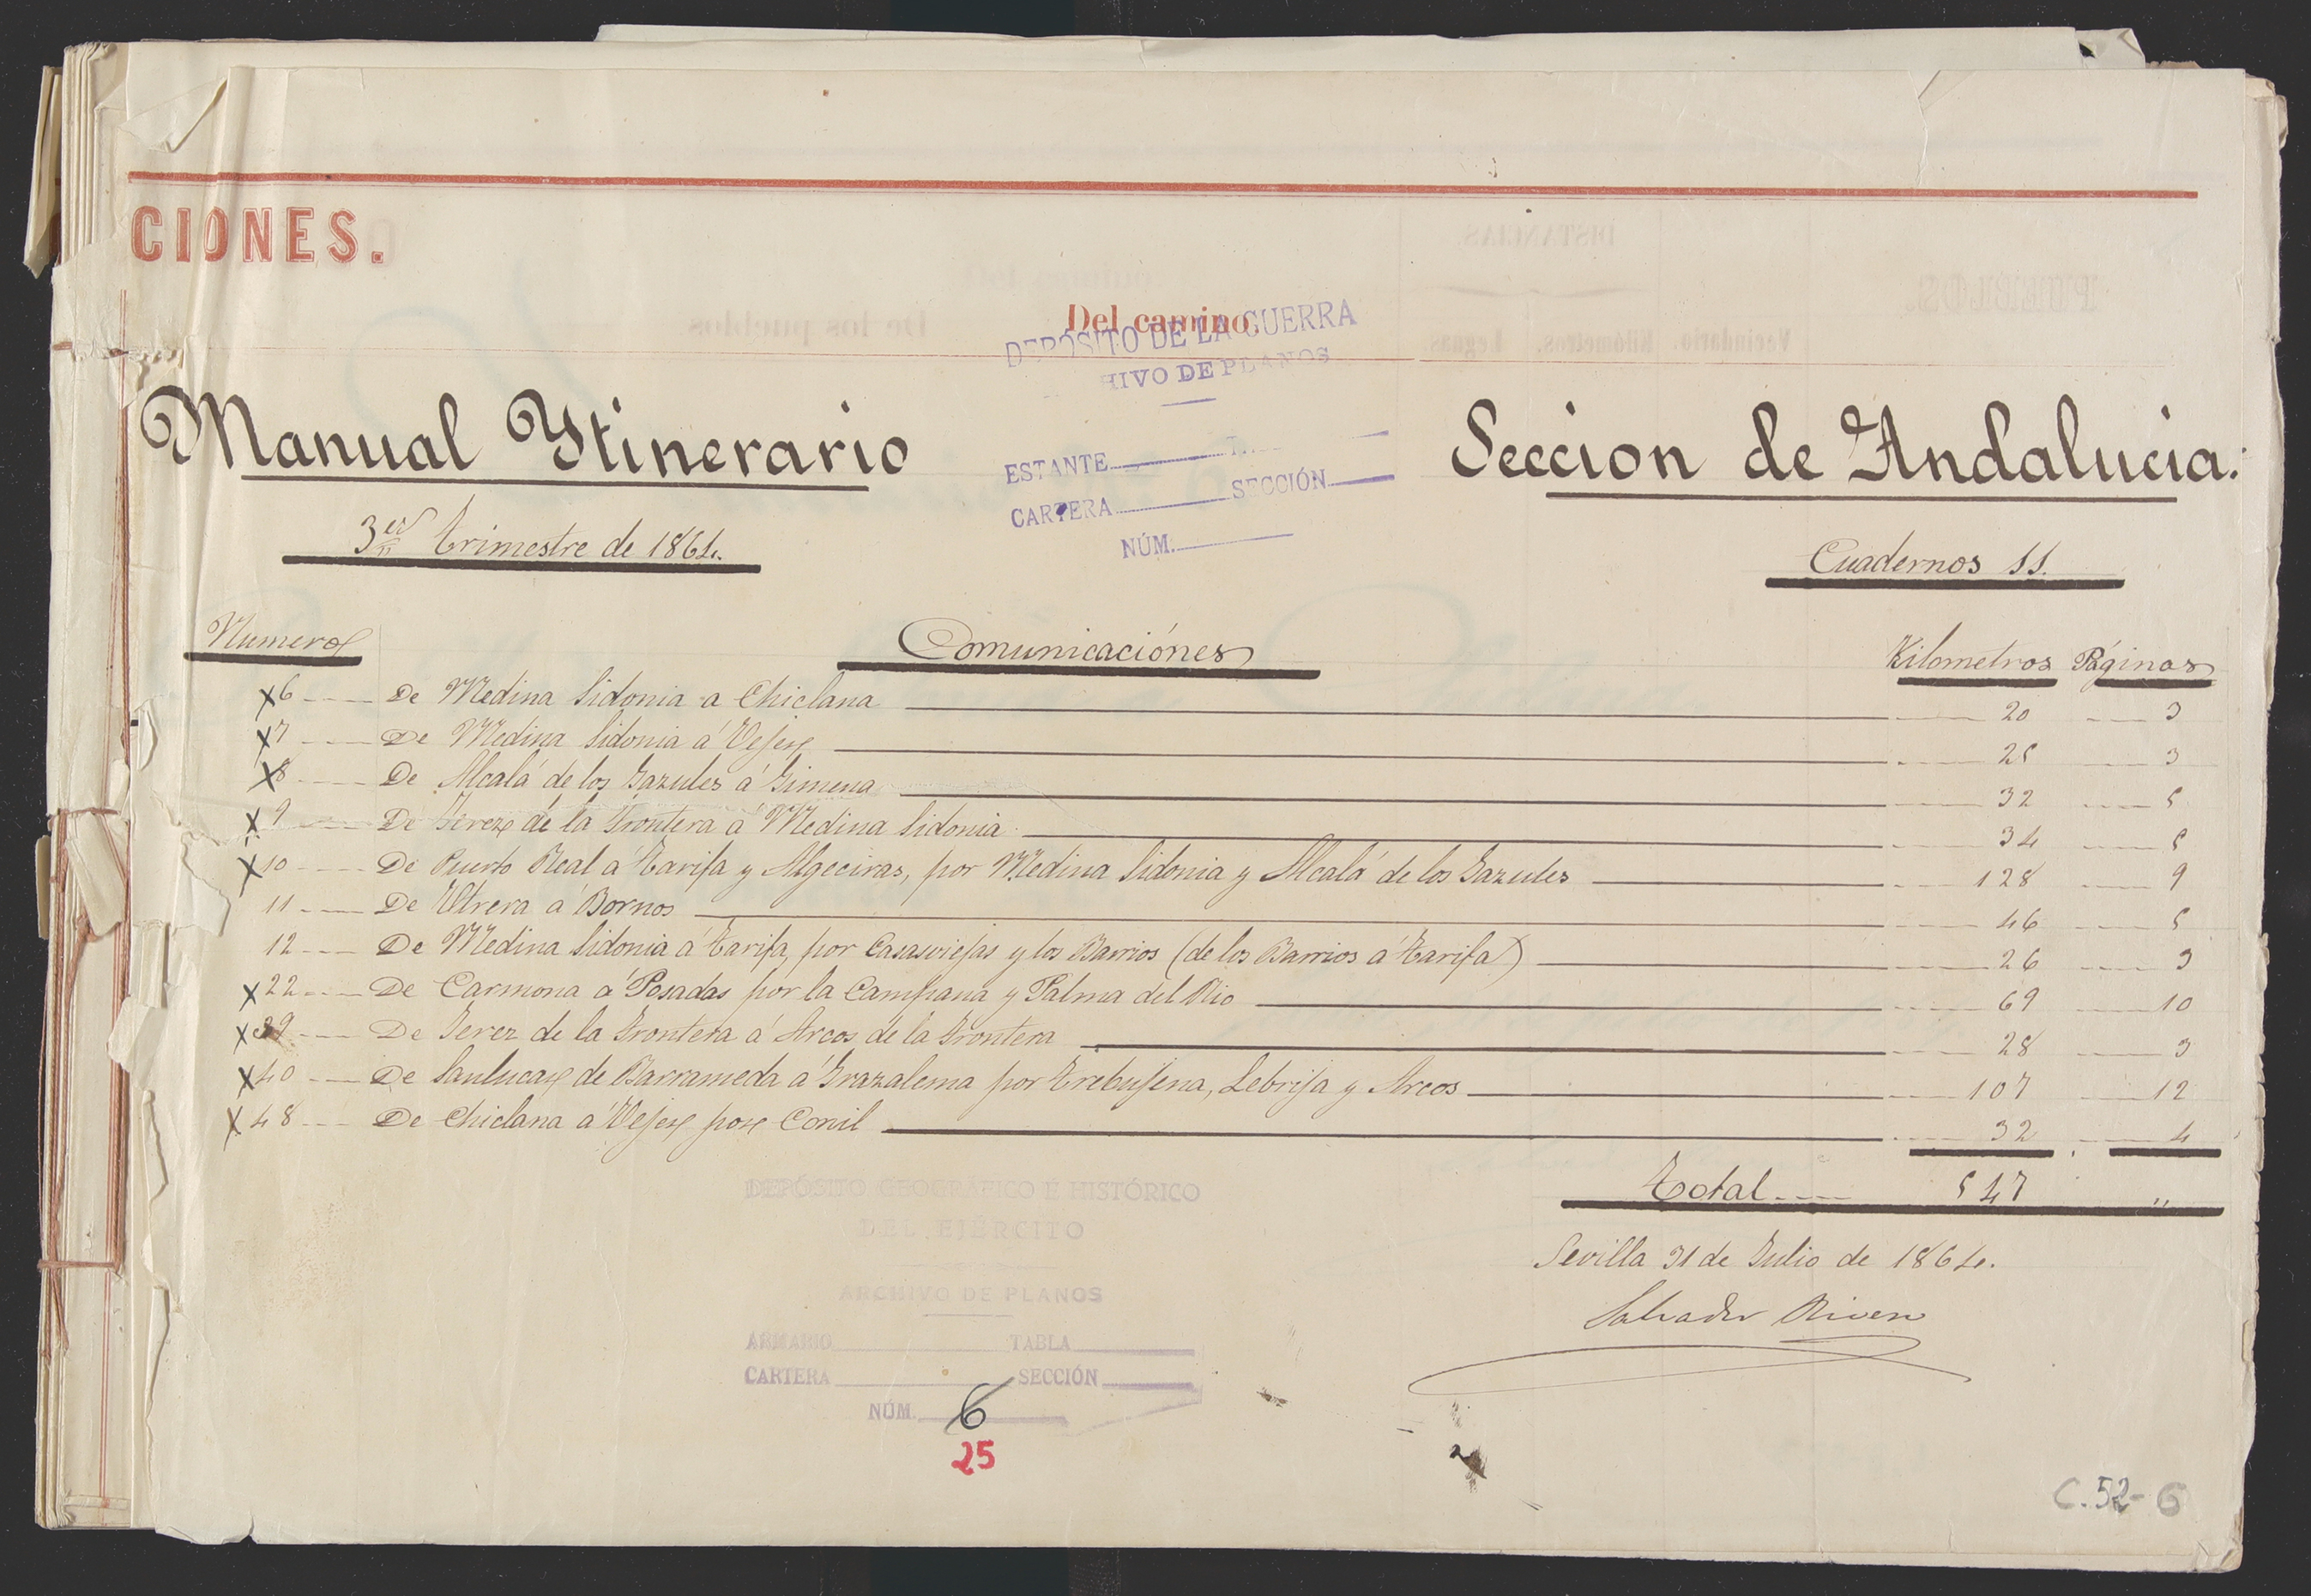 CIONES.
Del camino
DEPÓSITO DE LA GUERRA
HIVO DE PLANOS
Manual Ytinerario
Seccion de Andalucia.
ESTANTE T.
CARTERA SECCIÓN
NÚM.
3er trimestre de 1864.
Cuadernos 11.
Numeros Comunicaciónes Kilometros Páginas
x6 De Medina Sidonia a Chiclana 20 3
x7 De Medina Sidonia á Vejer 25 3
x8 De Alcalá de los Gazules á Gimena 32 5
x9 De Jerez de la Frontera á Medina Sidonia 34 5
x10 De Puerto Real á Tarifa y Algeciras, por Medina Sidonia y Alcalá de los Gazules 128 9
11 De Utrera á Bornos 46 5
12 De Medina Sidonia á Tarifa, por Casasviejas y los Barrios (de los Barrios á Tarifa) 26 3
x22 De Carmona á Posadas por la Campana y Palma del Rio 69 10
x39 De Jerez de la Frontera á Arcos de la Frontera 28 3
x40 De Sanlucar de Barrameda á Grazalema por Trebujena, Lebrija y Arcos 107 12
x48 De Chiclana á Vejer por Conil 32 4
Total 547 "
DEPÓSITO GEOGRÁFICO É HISTÓRICO
DEL EJÉRCITO
ARCHIVO DE PLANOS
ARMARIO TABLA
CARTERA SECCIÓN
NÚM. 6
25
Sevilla 31 de Julio de 1864.
Salvador Rivero
C. 52-6